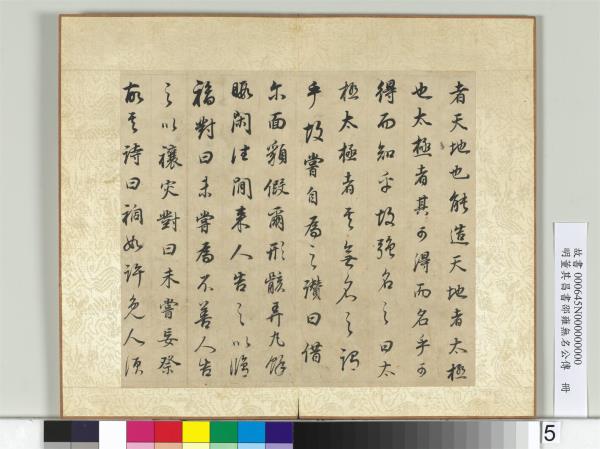 者天地也能造天地者太極
也太極者其可得而名乎可
得而知乎故強名之曰太
極太極者其無名之謂
乎故嘗自為之讚曰借
尔面貌假爾形骸弄丸餘
暇閑往閒來人告之以脩
福對曰未嘗為不善人告
之以禳灾對曰未嘗妄祭
故其詩曰禍如許免人須
故書000645N000000000
明董其昌書邵雍無名公傳 冊
5